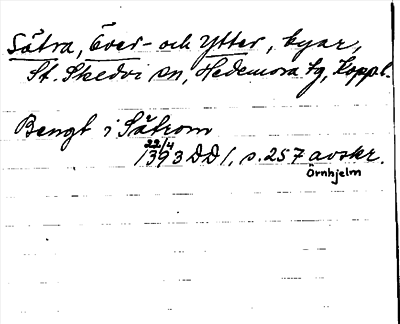 Sätra, Över- och Ytter, byar,
St. Skedvi sn, Hedemora tg, Koppb.
Bengt i Sätrom
22/4
1393 DD 1, s. 257 avskr.
Örnhjelm